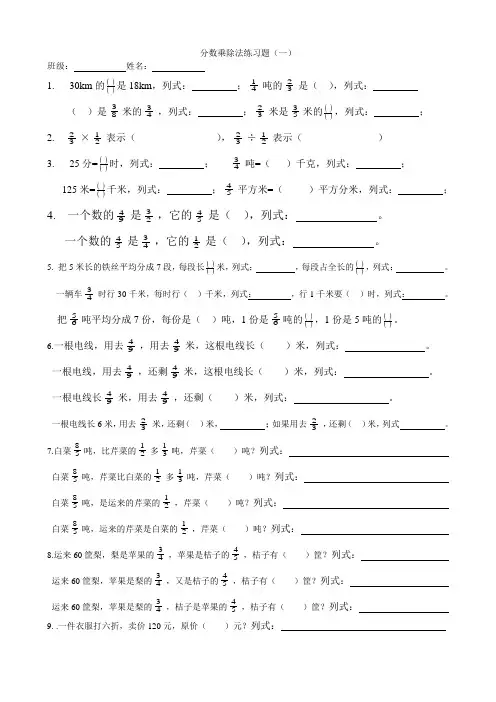 分数乘除法练习题（一）
班级： 姓名：
1. 30km的( )/( )是18km，列式： ； 1/4 吨的 2/3 是（ ），列式：
（ ）是 3/8 米的 3/4 ，列式： ； 2/3 米是 3/5 米的( )/( )，列式： ；
2. 2/3 × 1/2 表示（ ）， 2/3 ÷ 1/2 表示（ ）
3. 25分=( )/( )时，列式： ； 3/4 吨=（ ）千克，列式： ；
125米=( )/( )千米，列式： ； 4/5 平方米=（ ）平方分米，列式： ；
4. 一个数的 4/9 是 3/2 ，它的 4/5 是（ ），列式： 。
一个数的 4/5 是 3/4 ，它的 1/2 是（ ），列式： 。
5. 把5米长的铁丝平均分成7段，每段长( )/( )米，列式： ，每段占全长的( )/( )，列式： 。
一辆车 3/4 时行30千米，每时行（ ）千米，列式： ，行1千米要（ ）时，列式： 。
把 5/6 吨平均分成7份，每份是（ ）吨，1份是 5/6 吨的( )/( )，1份是5吨的( )/( )。
6.一根电线，用去 4/9 ，用去 4/9 米，这根电线长（ ）米，列式： 。
一根电线，用去 4/9 ，还剩 4/9 米，这根电线长（ ）米，列式： 。
一根电线长 4/9 米，用去 4/9 ，还剩（ ）米，列式： 。
一根电线长6米，用去 2/3 米，还剩（ ）米， ；如果用去 2/3 ，还剩（ ）米，列式 。
7.白菜 8/5 吨，比芹菜的 1/2 多 1/3 吨，芹菜（ ）吨？列式：
白菜 8/5 吨，芹菜比白菜的 1/2 多 1/3 吨，芹菜（ ）吨？列式：
白菜 8/5 吨，是运来的芹菜的 1/2 ，芹菜（ ）吨？列式：
白菜 8/5 吨，运来的芹菜是白菜的 1/2 ，芹菜（ ）吨？列式：
8.运来60筐梨，梨是苹果的 3/4 ，苹果是桔子的 4/5 ，桔子有（ ）筐？列式：
运来60筐梨，苹果是梨的 3/4 ，又是桔子的 4/5 ，桔子有（ ）筐？列式：
运来60筐梨，苹果是梨的 3/4 ，桔子是苹果的 4/5 ，桔子有（ ）筐？列式：
9. .一件衣服打六折，卖价120元，原价（ ）元？列式：